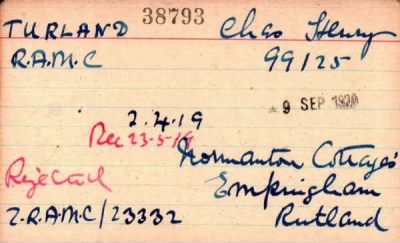 TURLAND 38793 Chas Henry
R.A.M.C 99125
9 SEP 1920
2.4.19
Rec 23-5-19
Normanton Cottages
Rejected Empingham
Z.R.AMC/23332 Rutland